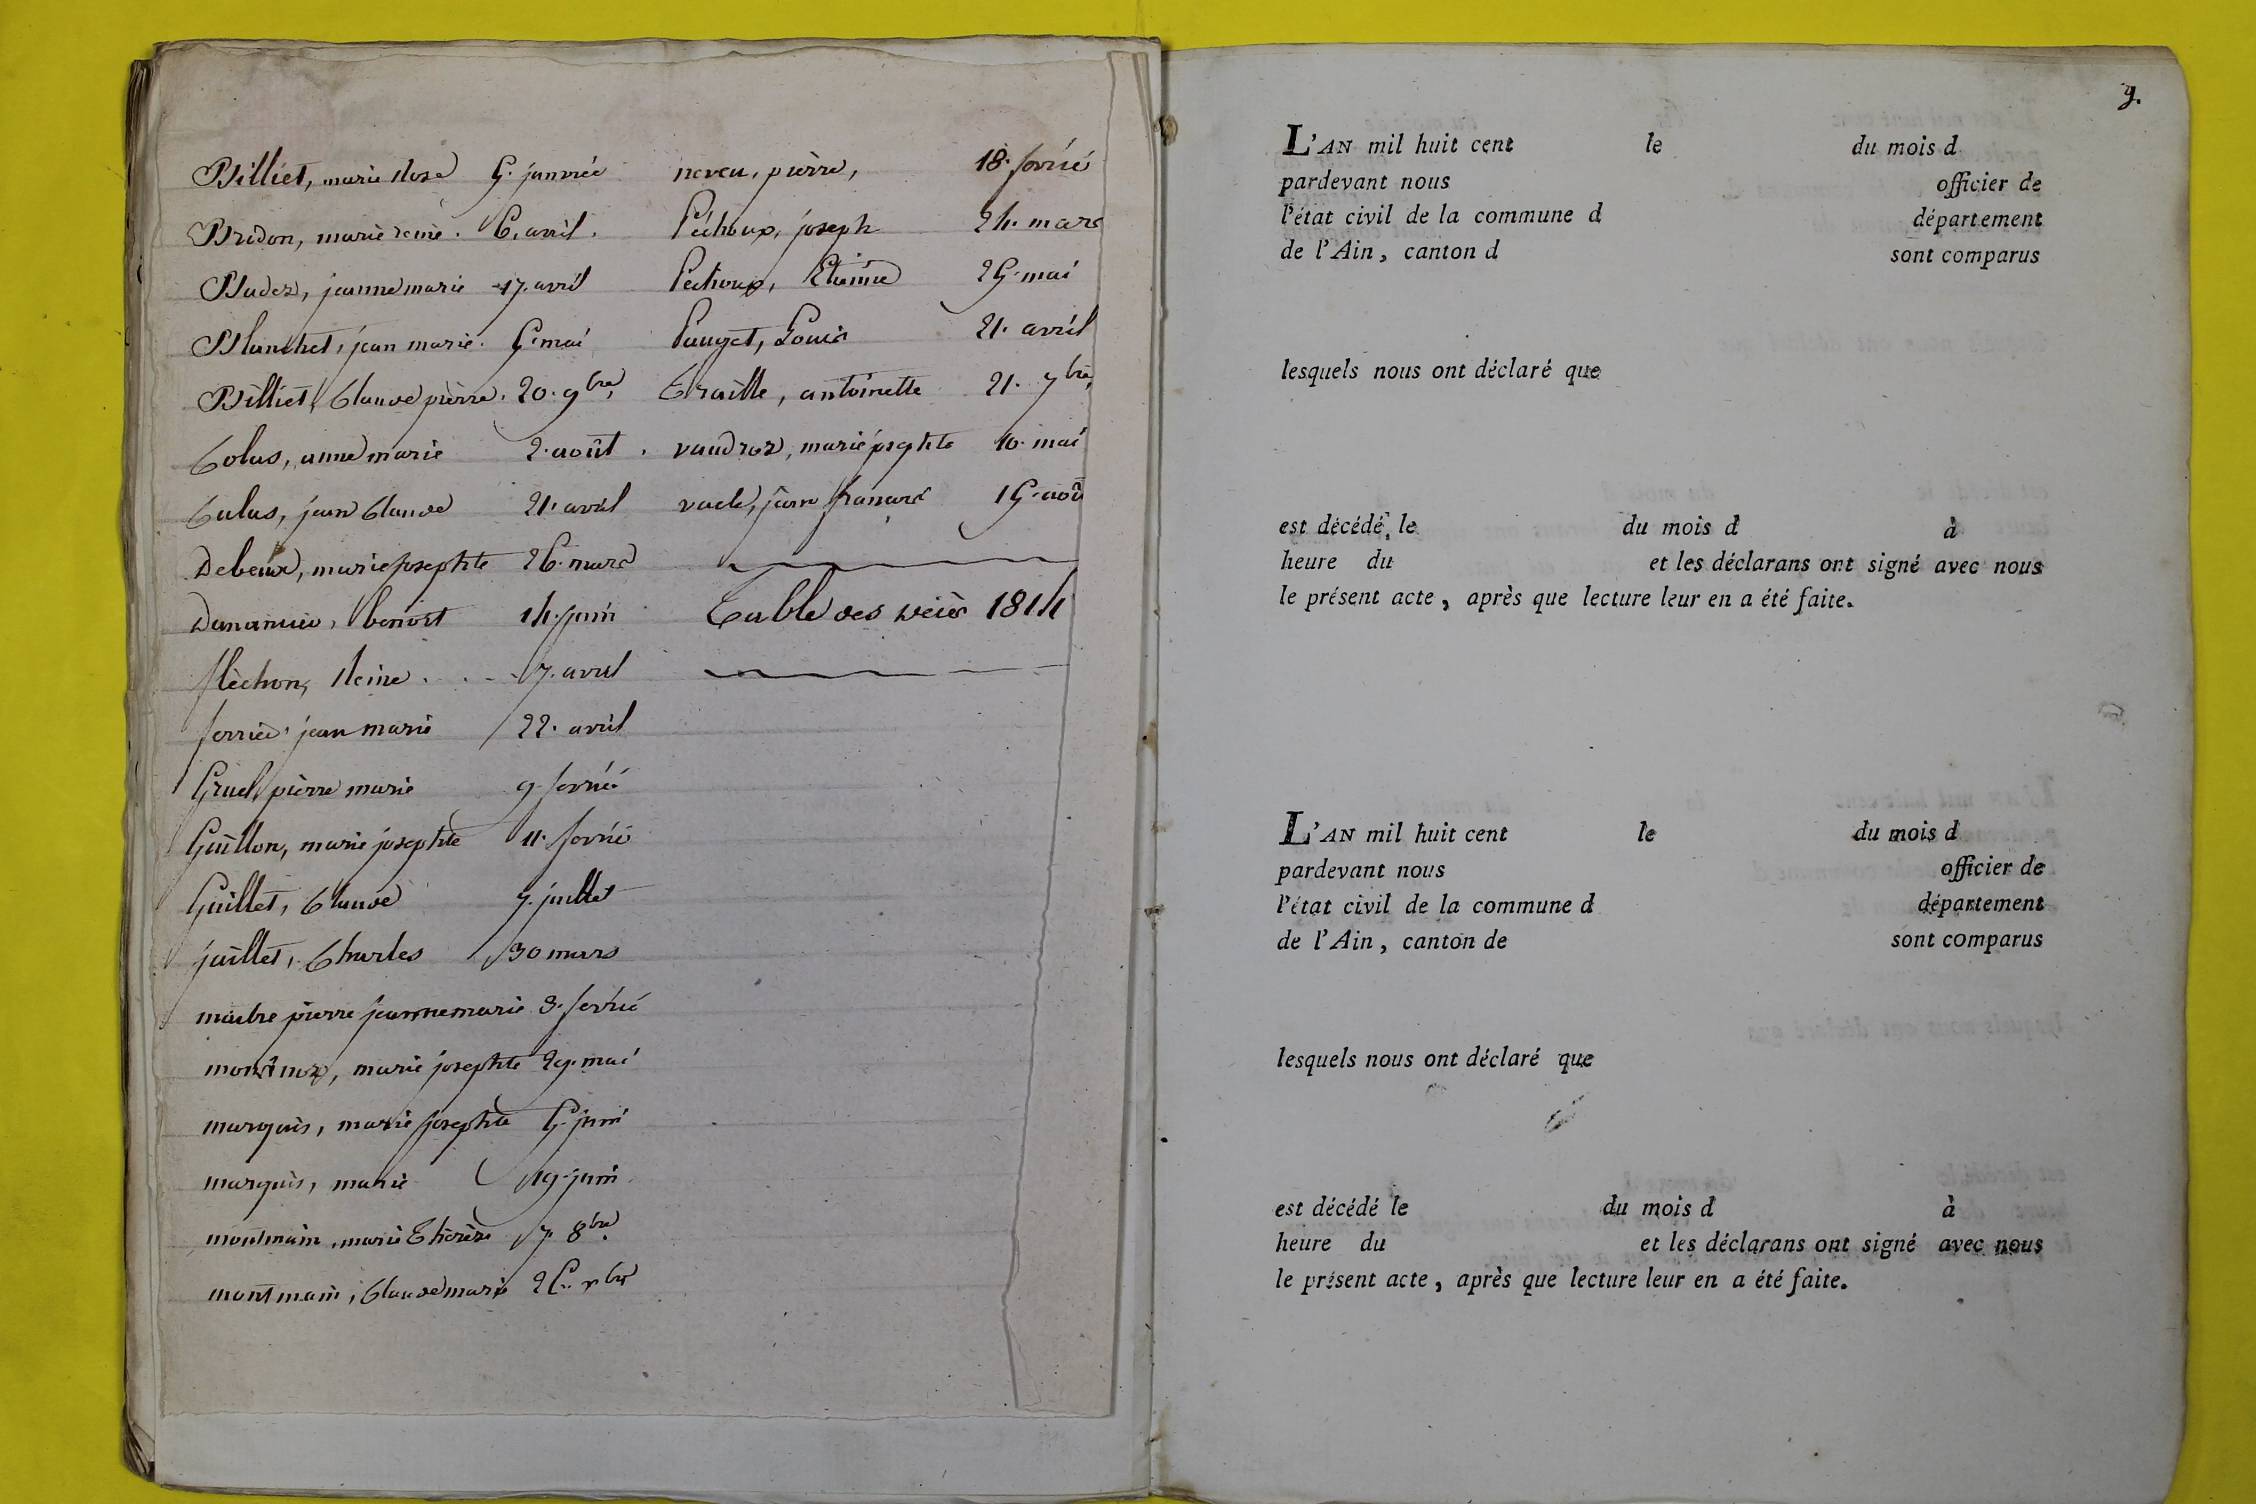 Billiet, marie Rose 5. janvié
Bridon, marie reine. 6. avril.
Buder, jeanne marie 17. avril
Blanchet, jean marie. 5. mai
Billiet, Claude pierre. 20. 9bre,
Colas, anne marie 2. août.
Calas, jean Claude 21. avril
Debeur, marie josephte 26. mars
benoit 14. juin
fléchon, Reine . . . . 7. avril
ferrier jean marie 22. avril
Gruel, pierre marie 9. fevrié
Guillon, marie josephte 11. fevrié
Guillet, Claude 7. juillet
juillet, Charles 30 mars
maitre pierre jeanne marie 3. fevrié
marie josephte 29. mai
marquis, marie josephte 5. juin
marquis, marie 19. juin
montmain, marie Therèse 7. 8bre.
montmain, Claude marie
neveu, pierre, 18. fevrié
Péchoux, joseph 24. mars
Péchoux, Etienne 25. mai
Pauget, Louis 21. avril
Traille, antoinette 21. 7bre,
vaudroz, marie josephte 10. mai
jean francois 15. aoû
Table des décès 1814
9.
L'AN mil huit cent le du mois d
pardevant nous officier de
l'état civil de la commune d département
de l'Ain, canton d sont comparus
lesquels nous ont déclaré que
est décédé, le du mois d à
heure du et les déclarans ont signé avec nous
le présent acte, après que lecture leur en a été faite.
L'AN mil huit cent le du mois d
pardevant nous officier de
l'état civil de la commune d département
de l'Ain, canton de sont comparus
lesquels nous ont déclaré que
est décédé le du mois d à
heure du et les déclarans ont signé avec nous
le présent acte, après que lecture leur en a été faite.